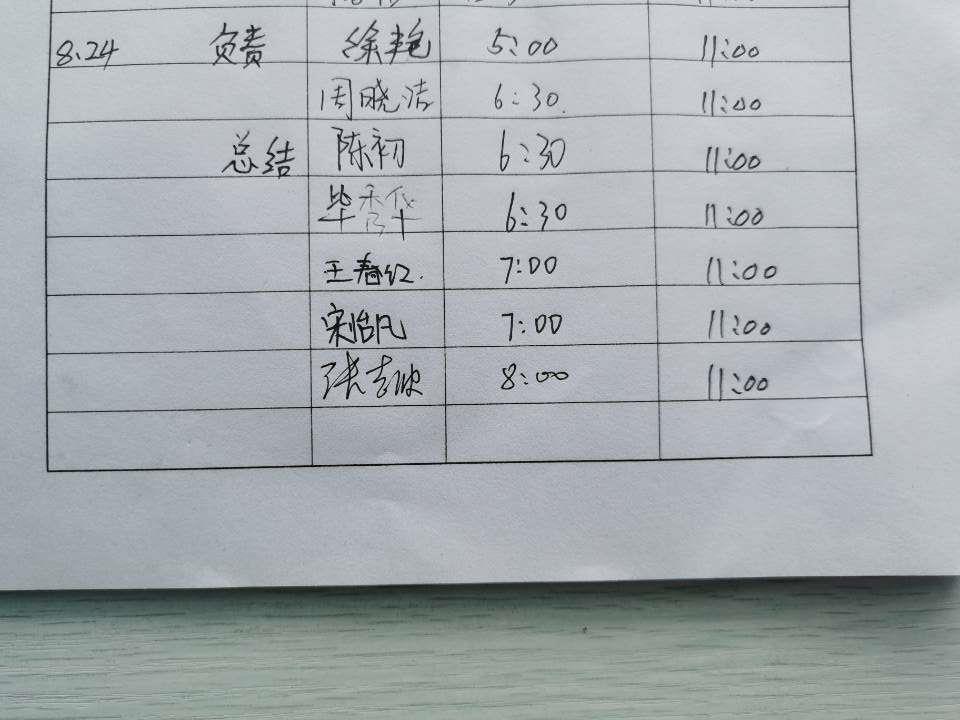 8.24 负责 徐艳 5:00 11:00
周晓洁 6:30. 11:00
总结 陈初 6:30 11:00
毕秀华 6:30 11:00
王春红. 7:00 11:00
宋怡凡 7:00 11:00
张志欣 8:00 11:00